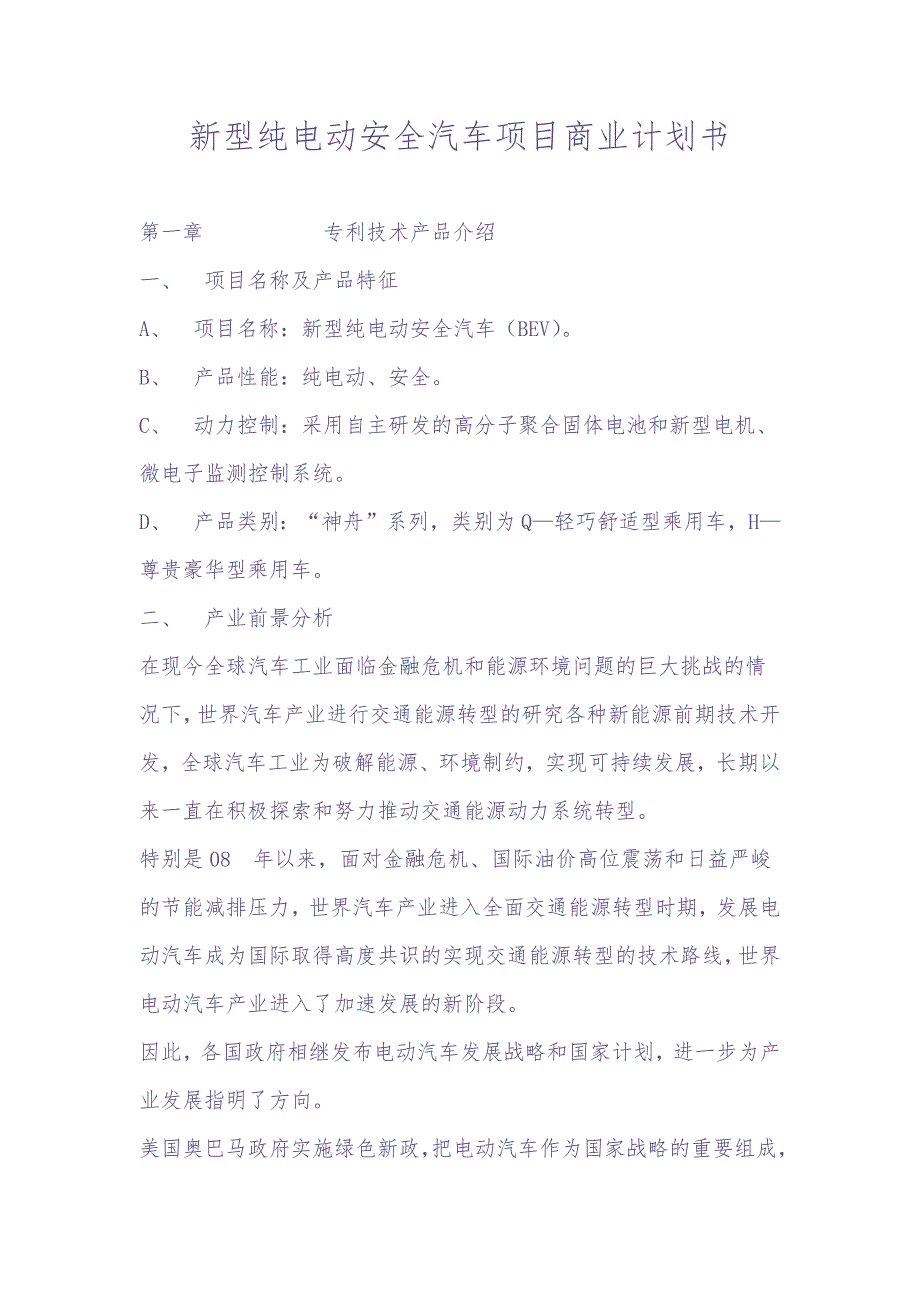 新型纯电动安全汽车项目商业计划书
第一章 专利技术产品介绍
一、 项目名称及产品特征
A、 项目名称：新型纯电动安全汽车（BEV）。
B、 产品性能：纯电动、安全。
C、 动力控制：采用自主研发的高分子聚合固体电池和新型电机、
微电子监测控制系统。
D、 产品类别：“神舟”系列，类别为Q—轻巧舒适型乘用车，H—
尊贵豪华型乘用车。
二、 产业前景分析
在现今全球汽车工业面临金融危机和能源环境问题的巨大挑战的情
况下，世界汽车产业进行交通能源转型的研究各种新能源前期技术开
发，全球汽车工业为破解能源、环境制约，实现可持续发展，长期以
来一直在积极探索和努力推动交通能源动力系统转型。
特别是08 年以来，面对金融危机、国际油价高位震荡和日益严峻
的节能减排压力，世界汽车产业进入全面交通能源转型时期，发展电
动汽车成为国际取得高度共识的实现交通能源转型的技术路线，世界
电动汽车产业进入了加速发展的新阶段。
因此，各国政府相继发布电动汽车发展战略和国家计划，进一步为产
业发展指明了方向。
美国奥巴马政府实施绿色新政，把电动汽车作为国家战略的重要组成，